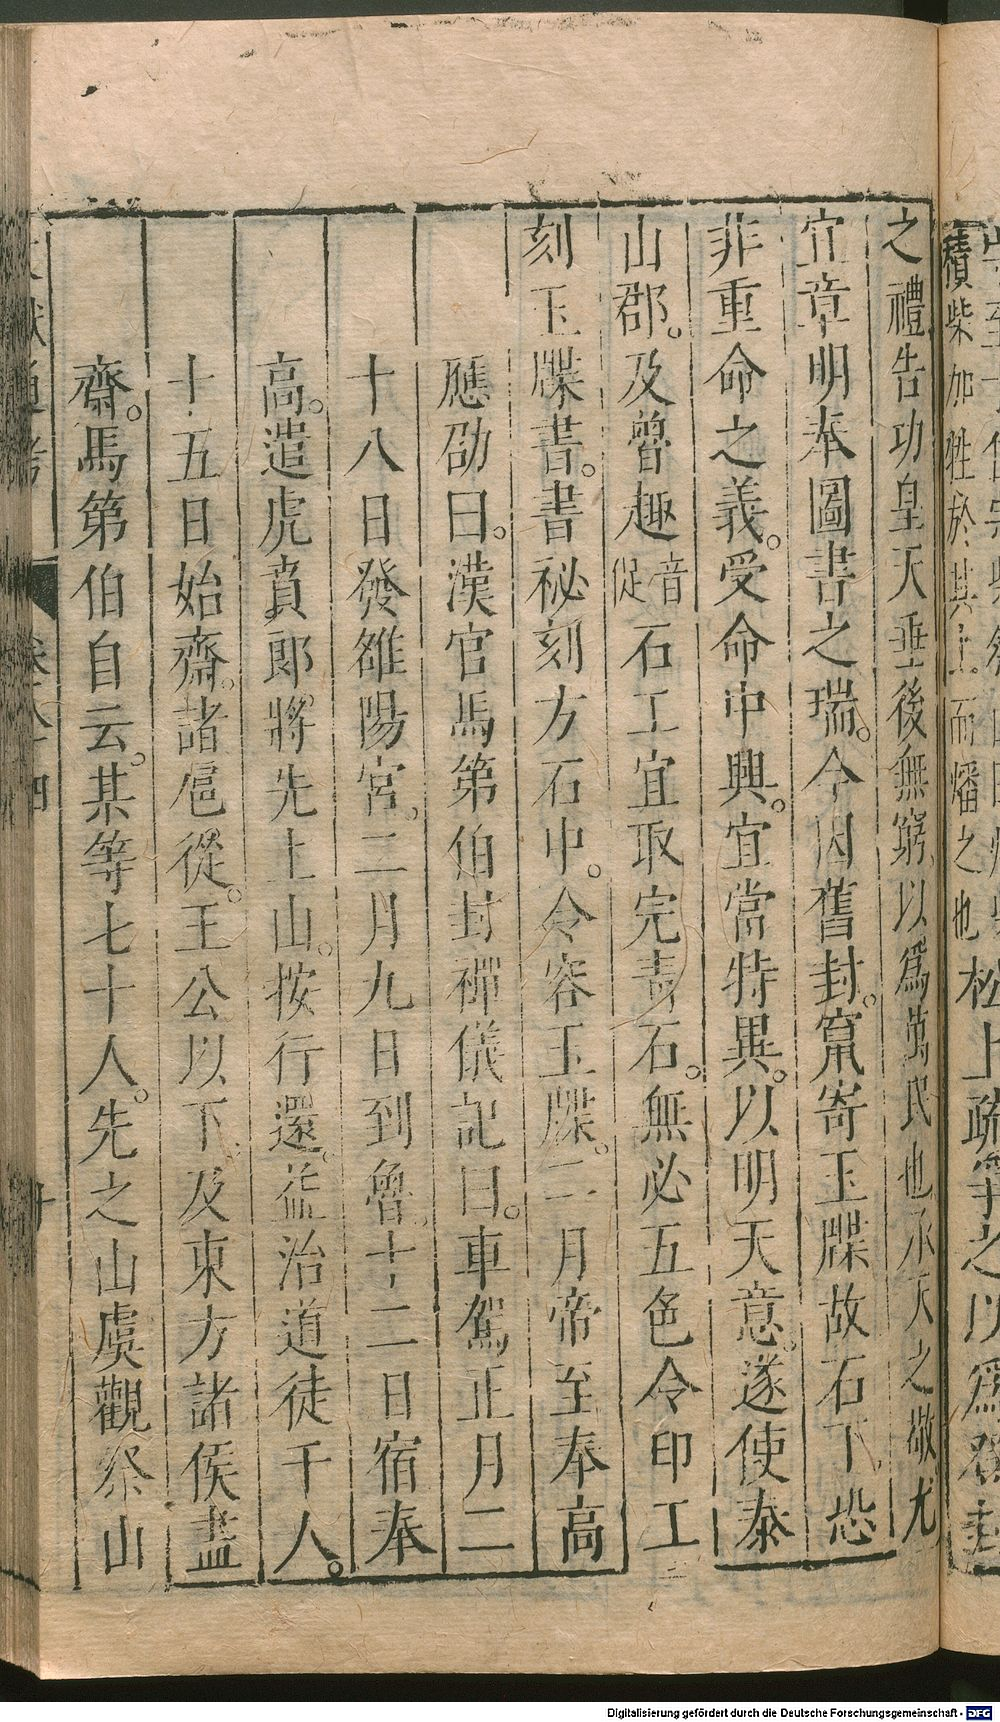 積柴加牲於其上而燔之也松上疏爭之以爲登封
之禮告功皇天垂後無窮以爲萬民也承天之敬尤
宜章明奉圖書之瑞。今因舊封。竄寄玉牒故石下恐
非重命之義。受命中興。宜當特異。以明天意。遂使泰
山郡。及魯趣音促石工宜取完青石。無必五色令印工
刻玉牒書。書秘刻方石中。令容玉牒。二月帝至奉高
應劭曰。漢官馬第伯封禪儀記曰。車駕正月二
十八日發雒陽宮。二月九日到魯。十二日宿奉
高。遣虎賁郎將先上山。按行還。益治道徒千人。
十五日始齋。諸扈從。王公以下及東方諸侯盡
齋。馬第伯自云。某等七十人。先之山虞觀祭山
Digitalisierung gefördert durch die Deutsche Forschungsgemeinschaft - DFG